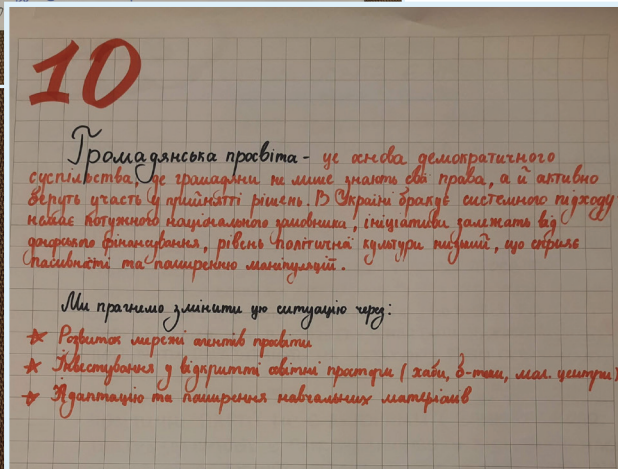 10
Громадянська просвіта - це основа демократичного
суспільства, де громадяни не лише знають свої права, а й активно
беруть участь у прийнятті рішень. В Україні бракує системного підходу
немає потужного національного замовника, ініціативи залежать від
донорського фінансування, рівень політичної культури низький, що сприяє
пасивності та поширенню маніпуляцій.
Ми прагнемо змінити цю ситуацію через:
Розвиток мережі агентів просвіти
Інвестування у відкритті освітні простори (хаби, б-теки, мол. центри)
Адаптацію та поширення навчальних матеріалів